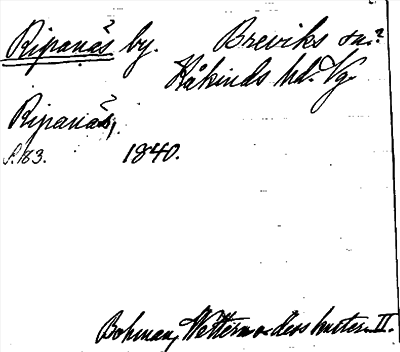 Ripanäs by. Breviks sn.
Kåkinds hd. Vg.
Ripanäs,
s. 183. 1840.
Bohman, Wettern o. dess kuster. II.